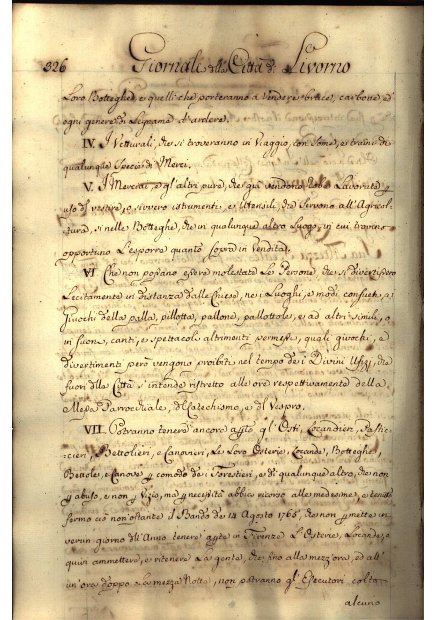 326 Giornali della Città di Livorno
Loro Botteghe, e quelli che porteranno a vendere brace, carbone, e
ogni genere di Legname d'ardere.
IV. I Vetturali, che si troveranno in Viaggio, con Some, e traini di
qualunque Specie di Merci.
V. I Merciai, e gl'altri pure, che già vendono robe Lavorate p
uso di vestire, o sivvero istrumenti, e Utensili, che Servono all'Agricol-
tura, si nelle Botteghe, che in qualunque altro Luogo, in cui trovino
opportuno L'esporre quanto Sopra in Vendita.
VI Che non possano essere molestate Le Persone, che si divertissero
Lecitamente in distanza dalle Chiese, ne i Luoghi, e modi consueti, ai
Giuochi della palla, pillotta, pallone, pallottole, e ad altri simili, o
in suoni, canti, e spettacoli altrimenti permessi, quali giuochi, e
divertimenti però vengono proibiti nel tempo de i Divini Ufizj, che
fuori della Città s'intende ristretto alle ore respettivamente della
Messa Parrochiale, del Catechismo, e del Vespro.
VII. Potranno tenere ancora apto gl'Osti, Locandieri, Pastic-
cieri, Bettolieri, e Canovieri, Le Loro Osterie, Locande, Botteghe,
Bettole, e Canove p comodo de i Forestieri, e di qualunque altro, che non
p abuso, e non p Vizio, ma p necessità abbia ricorso alle medesime, e tenuto
fermo ciò non'ostante il Bando de 14 Agosto 1766, che non pmette in
verun giorno dell'Anno tenere apte in Firenze L'Osterie, Locande, e
quivi ammettere, e ritenere La gente, che fino alla mezz'ora, ed all'
un'ora doppo a mezza Notte, non potranno gl'Esecutori colto
alcuno